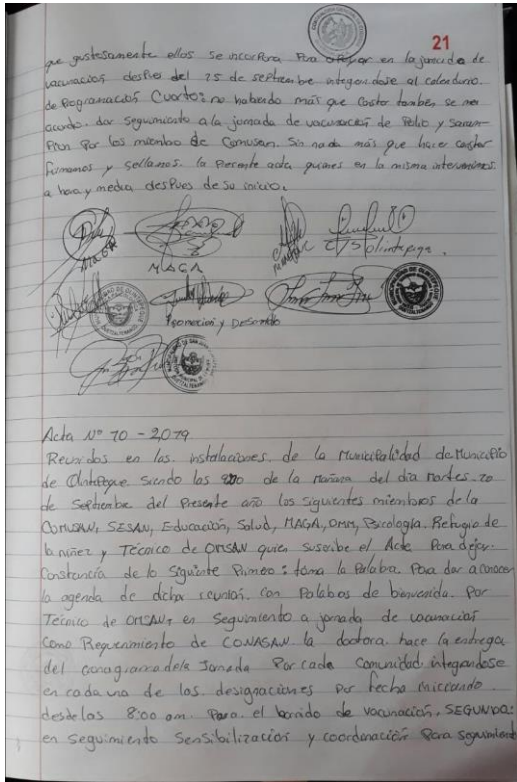 21
que gustosamente ellos se incorpora Para apoyar en la jornada de
vacunación despues del 15 de septiembre integandose al calendario.
de Programación Cuarto: no habiendo más que Costar tambien se
acordo. dar seguimiento a la jornada de vacunación de Polio y Saram
Pion Por los miembros de Comusan. Sin nada más que hacer constar
firmamos y sellamos. la Presente acta quienes en la misma intervenimos.
a hora y media despues de su inicio.
MAGA
MAGA
Olintepeque.
Promocion y Desarrollo
Acta Nº 10 - 2,019
Reunidos en las instalaciones. de la Municipalidad de Municipio
de Olintepeque. siendo las 9:00 de la mañana del día martes. 10
de Septiembre del Presente año los siguientes miembros de la
COMUSAN, SESAN, Educación, Salud, MAGA, DMM, Psicología. Refugio de
la niñez y Técnico de OMSAN quien suscribe el Acta Para dejar.
Constancía de lo Siguiente Primero: toma la Palabra. Para dar a conocer
la agenda de dicha reunión. Con Palabras de bienvenida. Por
Técnico de OMSAN, en Seguimiento a jornada de vacunación
Como Requerimiento de CONASAN. la doctora. hace la entrega
del cronograma de la Jornada Por cada Comunidad. integandose
en cada una de las designaciones por fecha iniciando.
desde las 8:00 am. Para. el barrido de vacunación. SEGUNDA:
en Seguimiento Sensibilización y coordinación Para seguimiento